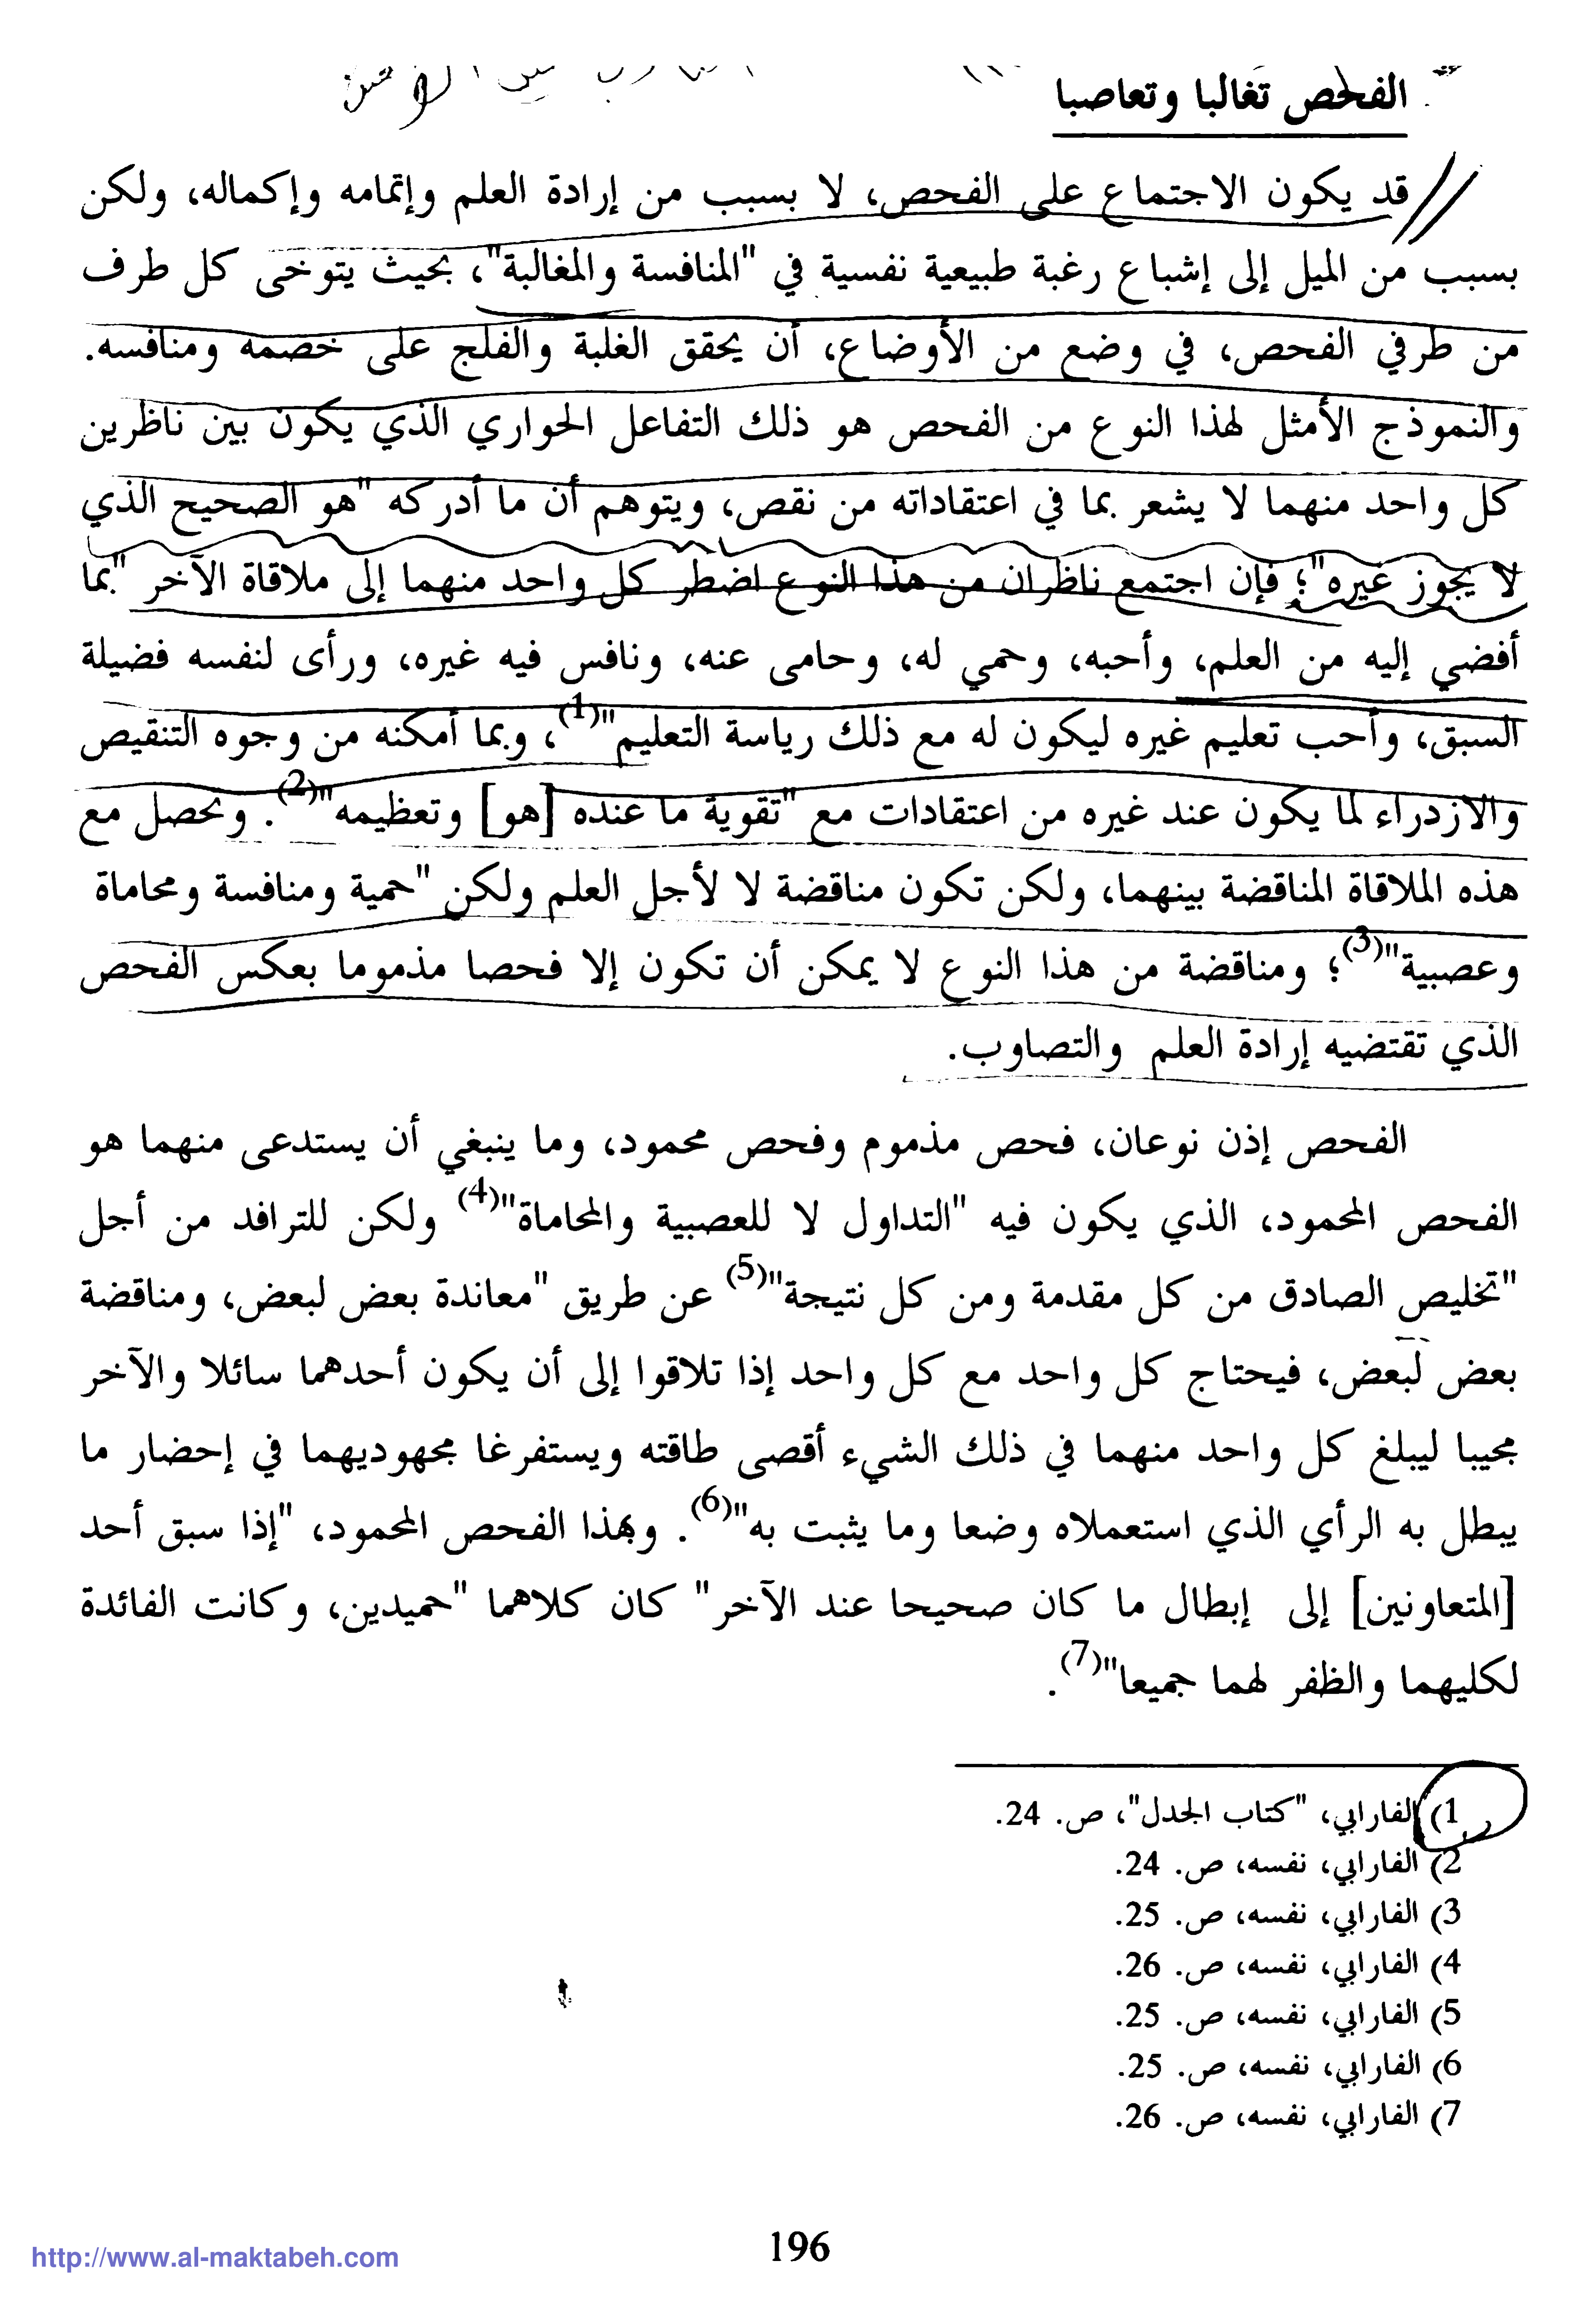 الفحص تغالبا وتعاصبا
قد يكون الاجتماع على الفحص، لا بسبب من إرادة العلم وإتمامه وإكماله، ولكن
بسبب من الميل إلى إشباع رغبة طبيعية نفسية في "المنافسة والمغالبة"، بحيث يتوخى كل طرف
من طرفي الفحص، في وضع من الأوضاع، أن يحقق الغلبة والفلج على خصمه ومنافسه.
والنموذج الأمثل لهذا النوع من الفحص هو ذلك التفاعل الحواري الذي يكون بين ناظرين
كل واحد منهما لا يشعر بما في اعتقاداته من نقص، ويتوهم أن ما أدركه "هو الصحيح الذي
لا يجوز غيره"؛ فإن اجتمع ناظران من هذا النوع اضطر كل واحد منهما إلى ملاقاة الآخر "بما
أفضي إليه من العلم، وأحبه، وحمي له، وحامى عنه، ونافس فيه غيره، ورأى لنفسه فضيلة
السبق، وأحب تعليم غيره ليكون له مع ذلك رياسة التعليم"(1)، وبما أمكنه من وجوه التنقيص
والازدراء لما يكون عند غيره من اعتقادات مع "تقوية ما عنده [هو] وتعظيمه"(2). وتحصل مع
هذه الملاقاة المناقضة بينهما، ولكن تكون مناقضة لا لأجل العلم ولكن "حمية ومنافسة ومحاماة
وعصبية"(3)؛ ومناقضة من هذا النوع لا يمكن أن تكون إلا فحصا مذموما بعكس الفحص
الذي تقتضيه إرادة العلم والتصاوب.
الفحص إذن نوعان، فحص مذموم وفحص محمود، وما ينبغي أن يستدعى منهما هو
الفحص المحمود، الذي يكون فيه "التداول لا للعصبية والمحاماة"(4) ولكن للترافد من أجل
"تخليص الصادق من كل مقدمة ومن كل نتيجة"(5) عن طريق "معاندة بعض لبعض، ومناقضة
بعض لبعض، فيحتاج كل واحد مع كل واحد إذا تلاقوا إلى أن يكون أحدهما سائلا والآخر
مجيبا ليبلغ كل واحد منهما في ذلك الشيء أقصى طاقته ويستفرغا مجهوديهما في إحضار ما
يبطل به الرأي الذي استعملاه وضعا وما يثبت به"(6). وبهذا الفحص المحمود، "إذا سبق أحد
[المتعاونين] إلى إبطال ما كان صحيحا عند الآخر" كان كلاهما "حميدين، وكانت الفائدة
لكليهما والظفر لهما جميعا"(7).
1) الفارابي، "كتاب الجدل"، ص. 24.
2) الفارابي، نفسه، ص. 24.
3) الفارابي، نفسه، ص. 25.
4) الفارابي، نفسه، ص. 26.
5) الفارابي، نفسه، ص. 25.
6) الفارابي، نفسه، ص. 25.
7) الفارابي، نفسه، ص. 26.
196
http://www.al-maktabeh.com